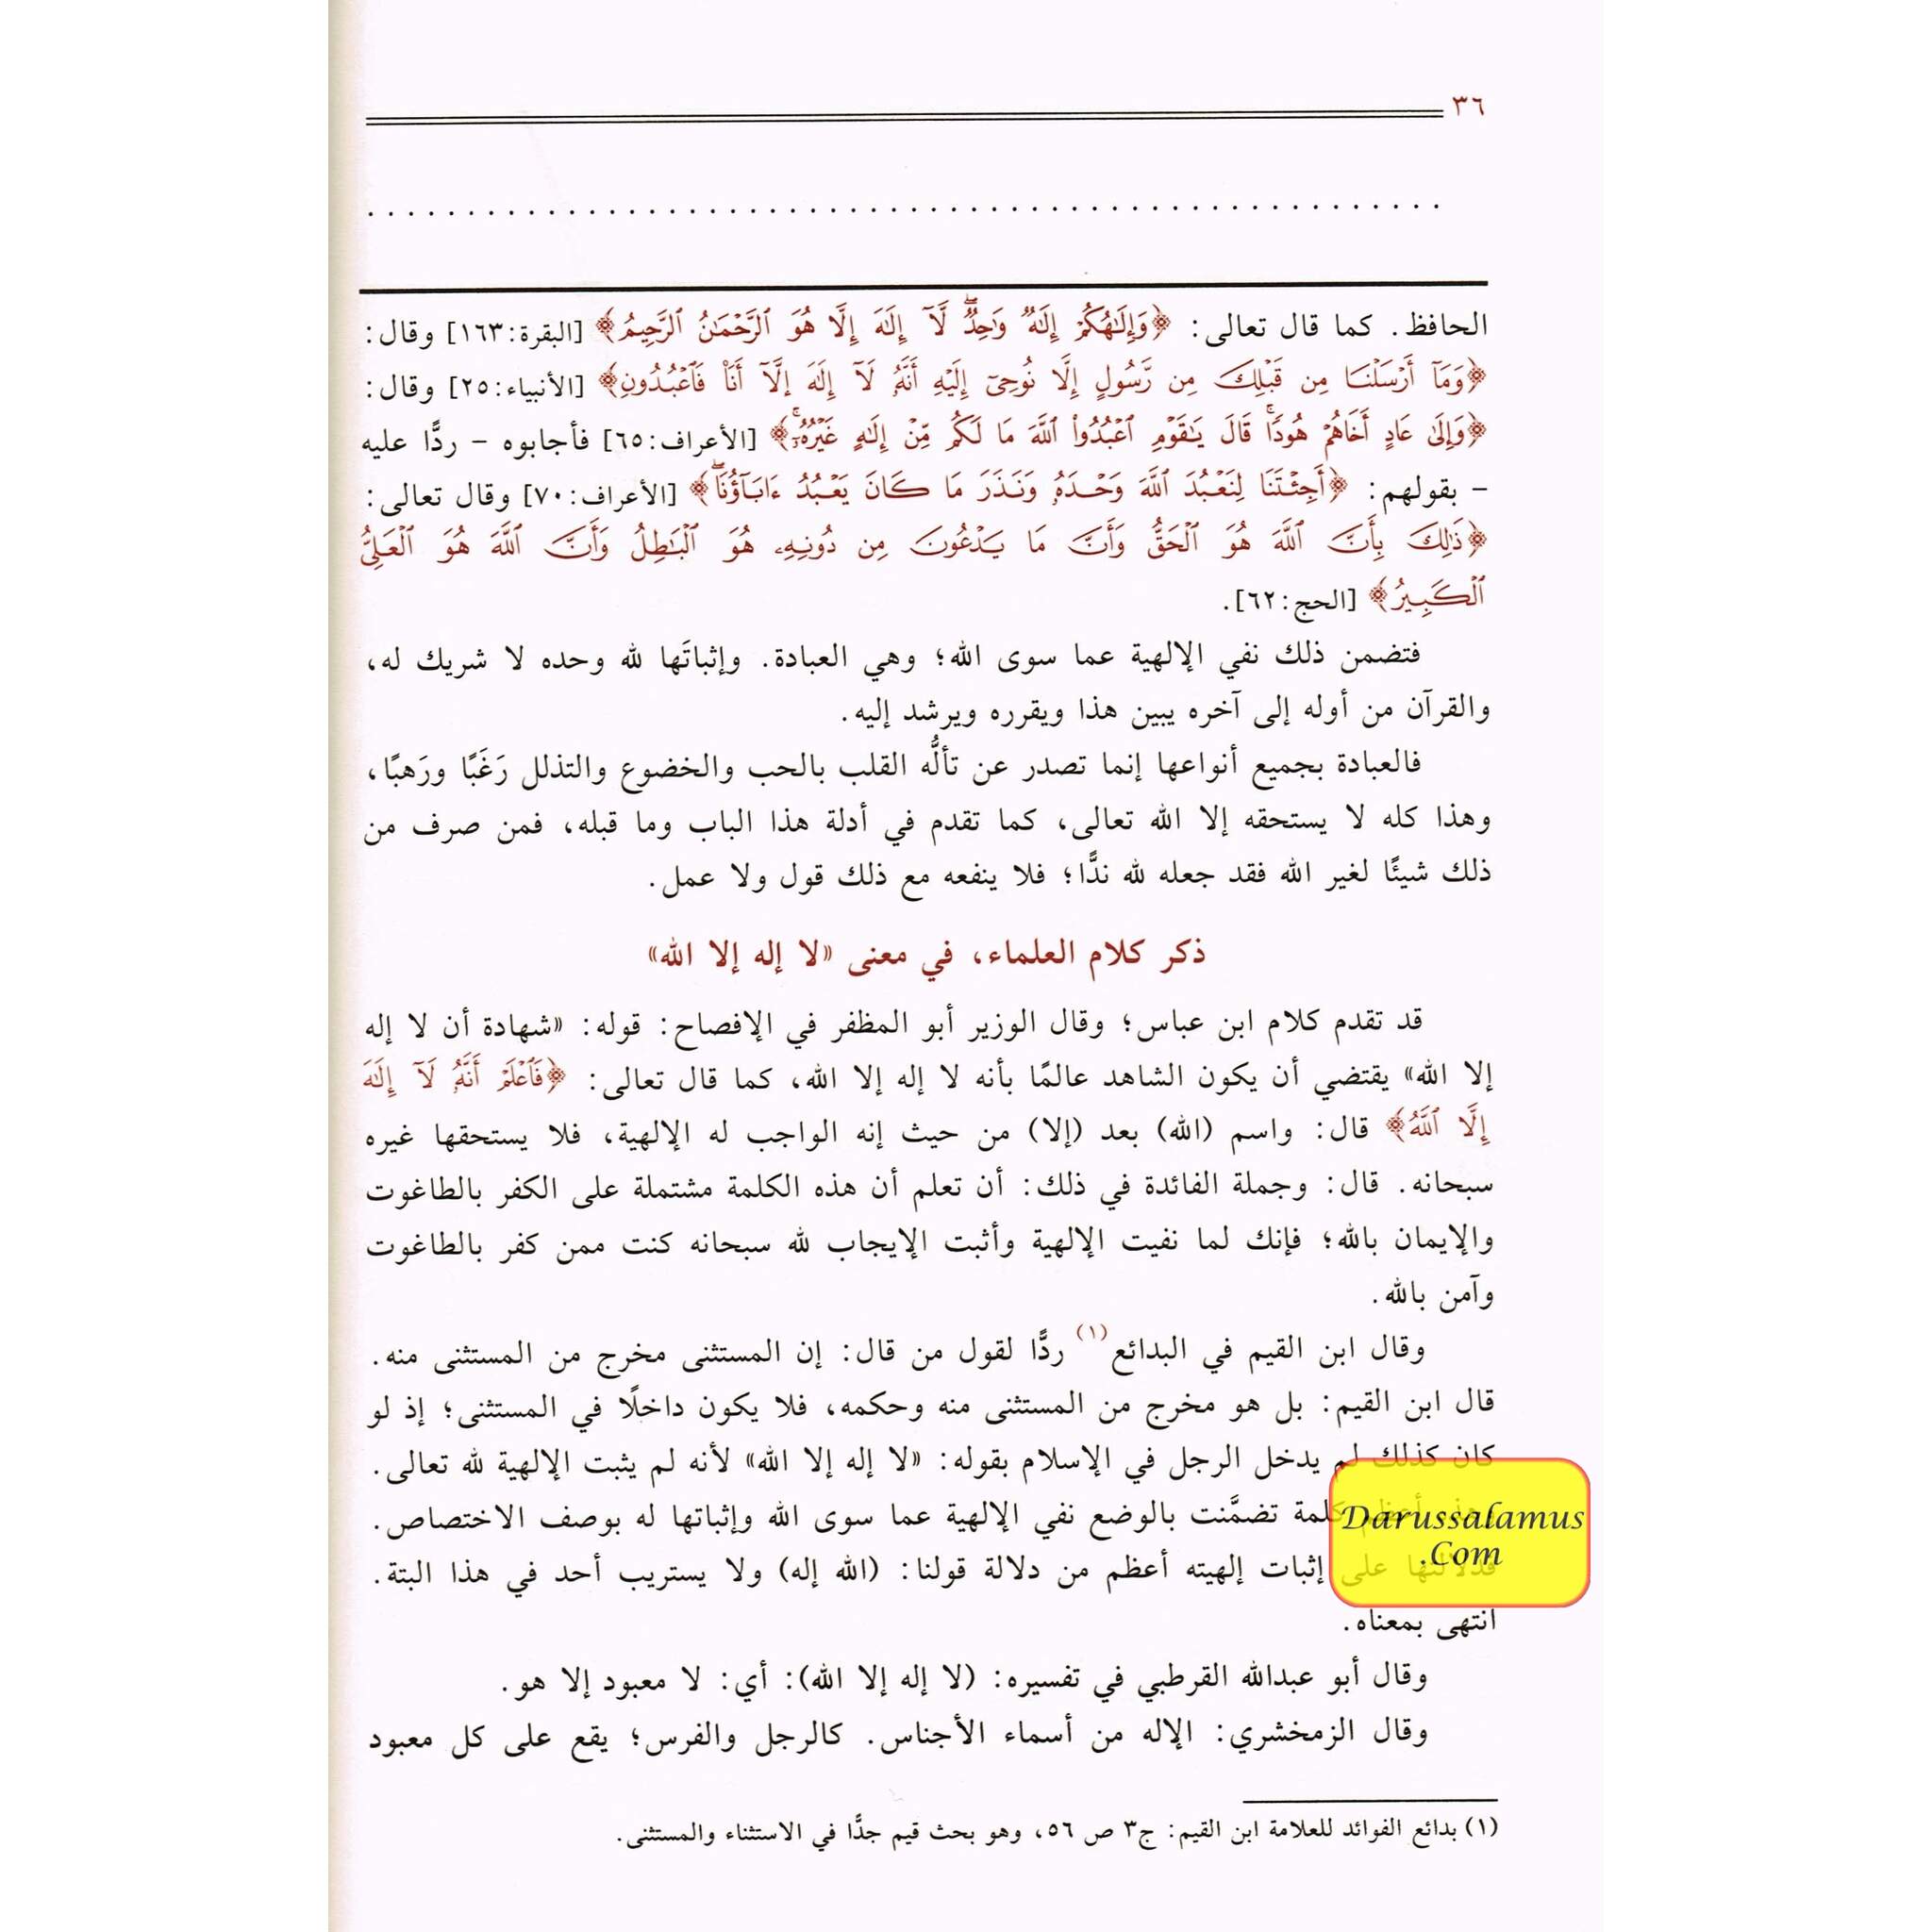 ٣٦
الحافظ. كما قال تعالى: ﴿وَإِلَٰهُكُمْ إِلَٰهٌ وَٰحِدٌ ۖ لَّآ إِلَٰهَ إِلَّا هُوَ ٱلرَّحْمَٰنُ ٱلرَّحِيمُ﴾ [البقرة:١٦٣] وقال:
﴿وَمَآ أَرْسَلْنَا مِن قَبْلِكَ مِن رَّسُولٍ إِلَّا نُوحِىٓ إِلَيْهِ أَنَّهُۥ لَآ إِلَٰهَ إِلَّآ أَنَا۠ فَٱعْبُدُونِ﴾ [الأنبياء:٢٥] وقال:
﴿وَإِلَىٰ عَادٍ أَخَاهُمْ هُودًا ۗ قَالَ يَٰقَوْمِ ٱعْبُدُوا۟ ٱللَّهَ مَا لَكُم مِّنْ إِلَٰهٍ غَيْرُهُۥٓ ۚ﴾ [الأعراف:٦٥] فأجابوه – ردًّا عليه
– بقولهم: ﴿أَجِئْتَنَا لِنَعْبُدَ ٱللَّهَ وَحْدَهُۥ وَنَذَرَ مَا كَانَ يَعْبُدُ ءَابَآؤُنَا ۖ﴾ [الأعراف:٧٠] وقال تعالى:
﴿ذَٰلِكَ بِأَنَّ ٱللَّهَ هُوَ ٱلْحَقُّ وَأَنَّ مَا يَدْعُونَ مِن دُونِهِۦ هُوَ ٱلْبَٰطِلُ وَأَنَّ ٱللَّهَ هُوَ ٱلْعَلِىُّ
ٱلْكَبِيرُ﴾ [الحج:٦٢].
فتضمن ذلك نفي الإلهية عما سوى الله؛ وهي العبادة. وإثباتَها لله وحده لا شريك له،
والقرآن من أوله إلى آخره يبين هذا ويقرره ويرشد إليه.
فالعبادة بجميع أنواعها إنما تصدر عن تألُّه القلب بالحب والخضوع والتذلل رَغَبًا ورَهبًا،
وهذا كله لا يستحقه إلا الله تعالى، كما تقدم في أدلة هذا الباب وما قبله، فمن صرف من
ذلك شيئًا لغير الله فقد جعله لله ندًّا؛ فلا ينفعه مع ذلك قول ولا عمل.
ذكر كلام العلماء، في معنى «لا إله إلا الله»
قد تقدم كلام ابن عباس؛ وقال الوزير أبو المظفر في الإفصاح: قوله: «شهادة أن لا إله
إلا الله» يقتضي أن يكون الشاهد عالمًا بأنه لا إله إلا الله، كما قال تعالى: ﴿فَٱعْلَمْ أَنَّهُۥ لَآ إِلَٰهَ
إِلَّا ٱللَّهُ﴾ قال: واسم (الله) بعد (إلا) من حيث إنه الواجب له الإلهية، فلا يستحقها غيره
سبحانه. قال: وجملة الفائدة في ذلك: أن تعلم أن هذه الكلمة مشتملة على الكفر بالطاغوت
والإيمان بالله؛ فإنك لما نفيت الإلهية وأثبت الإيجاب لله سبحانه كنت ممن كفر بالطاغوت
وآمن بالله.
وقال ابن القيم في البدائع(١) ردًّا لقول من قال: إن المستثنى مخرج من المستثنى منه.
قال ابن القيم: بل هو مخرج من المستثنى منه وحكمه، فلا يكون داخلًا في المستثنى؛ إذ لو
كان كذلك لم يدخل الرجل في الإسلام بقوله: «لا إله إلا الله» لأنه لم يثبت الإلهية لله تعالى.
كلمة تضمَّنت بالوضع نفي الإلهية عما سوى الله وإثباتها له بوصف الاختصاص.
على إثبات إلهيته أعظم من دلالة قولنا: (الله إله) ولا يستريب أحد في هذا البتة.
انتهى بمعناه.
وقال أبو عبدالله القرطبي في تفسيره: (لا إله إلا الله): أي: لا معبود إلا هو.
وقال الزمخشري: الإله من أسماء الأجناس. كالرجل والفرس؛ يقع على كل معبود
(١) بدائع الفوائد للعلامة ابن القيم: ج٣ ص ٥٦، وهو بحث قيم جدًّا في الاستثناء والمستثنى.
Darussalamus
.Com